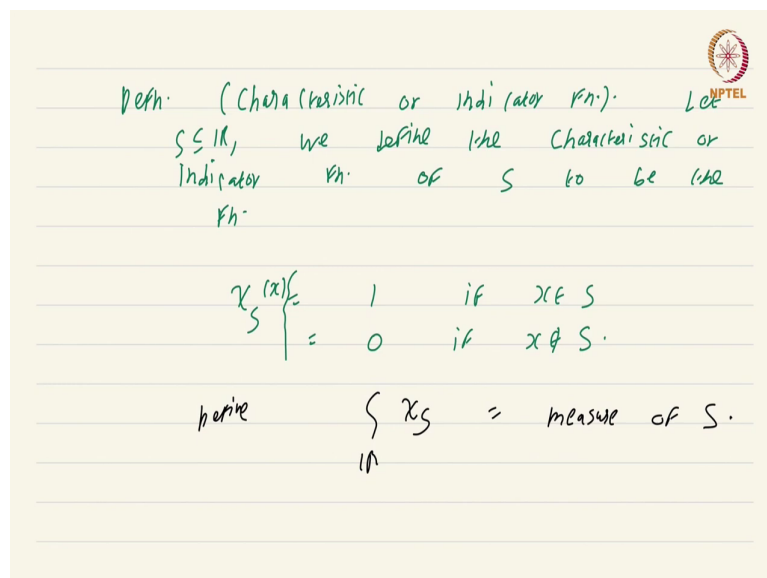 NPTEL
Defn. (Characteristic or Indicator Fn.). Let
S ⊆ IR, we define the Characteristic or
Indicator Fn. of S to be the
Fn.
χ_S(x) = 1 if x ∈ S
= 0 if x ∉ S.
Define ∫_IR χ_S = measure of S.